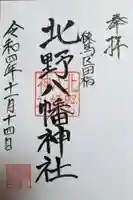 奉拝
北野八幡神社
令和四年十一月十四日